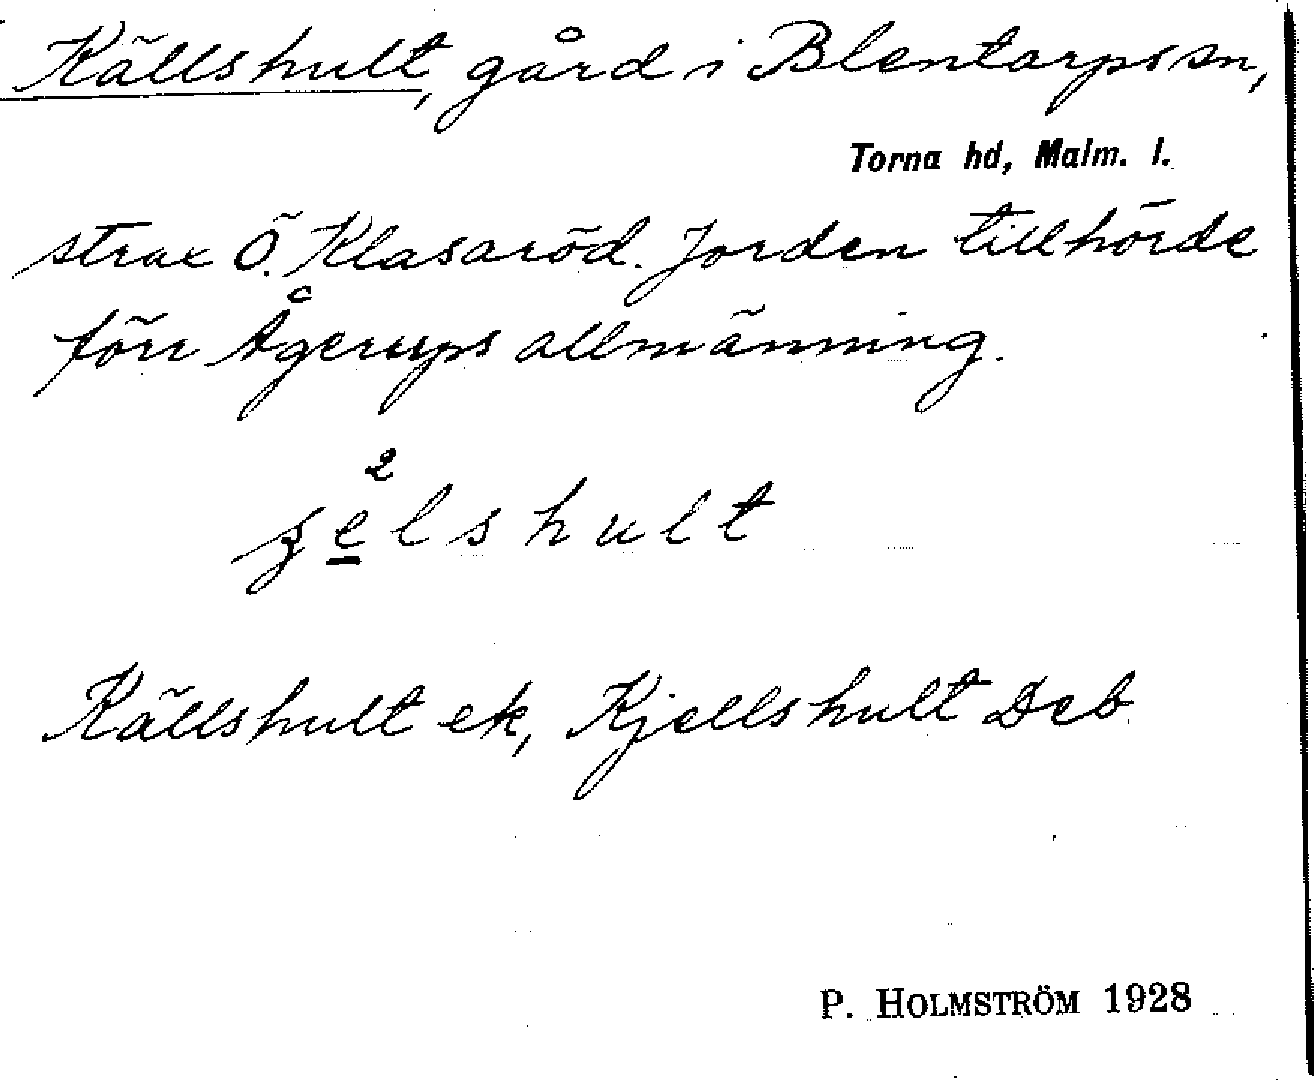 Källshult, gård i Blentarps sn,
Torna hd, Malm. l.
strax Ö. Klasaröd. Jorden tillhörde
förr Ågerups allmänning.
2
ʂelshult
Källshult ek, Kjellshult Deb
P. HOLMSTRÖM 1928